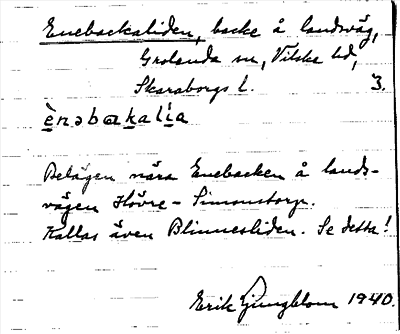 Enebackaliden, backe å landsväg,
Grolanda sn, Vilske hd,
Skaraborgs l. 3.
è̱nəbɑka̱li̱̓a
Belägen nära Enebacken å lands-
vägen Hövre - Simonstorp.
Kallas även Blinnesliden. Se detta!
Erik Ljungblom 1940.